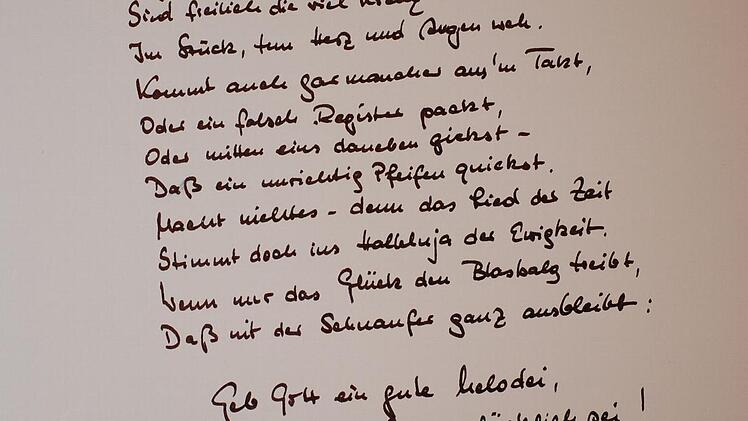 Sind freilich die viel Kreuz
Im Stück, tun Herz und Augen weh.
Kommt auch gar mancher aus'm Takt,
Oder ein falsch Register packt,
Oder mitten eins daneben gickst –
Daß ein unrichtig Pfeifen quickst.
Macht nichtes – denn das Lied der Zeit
Stimmt doch ins Halleluja der Ewigkeit.
Wenn nur das Glück den Blasbalg treibt,
Daß nit der Schnaufer ganz ausbleibt:
Geb Gott ein gute Melodei,
sei!